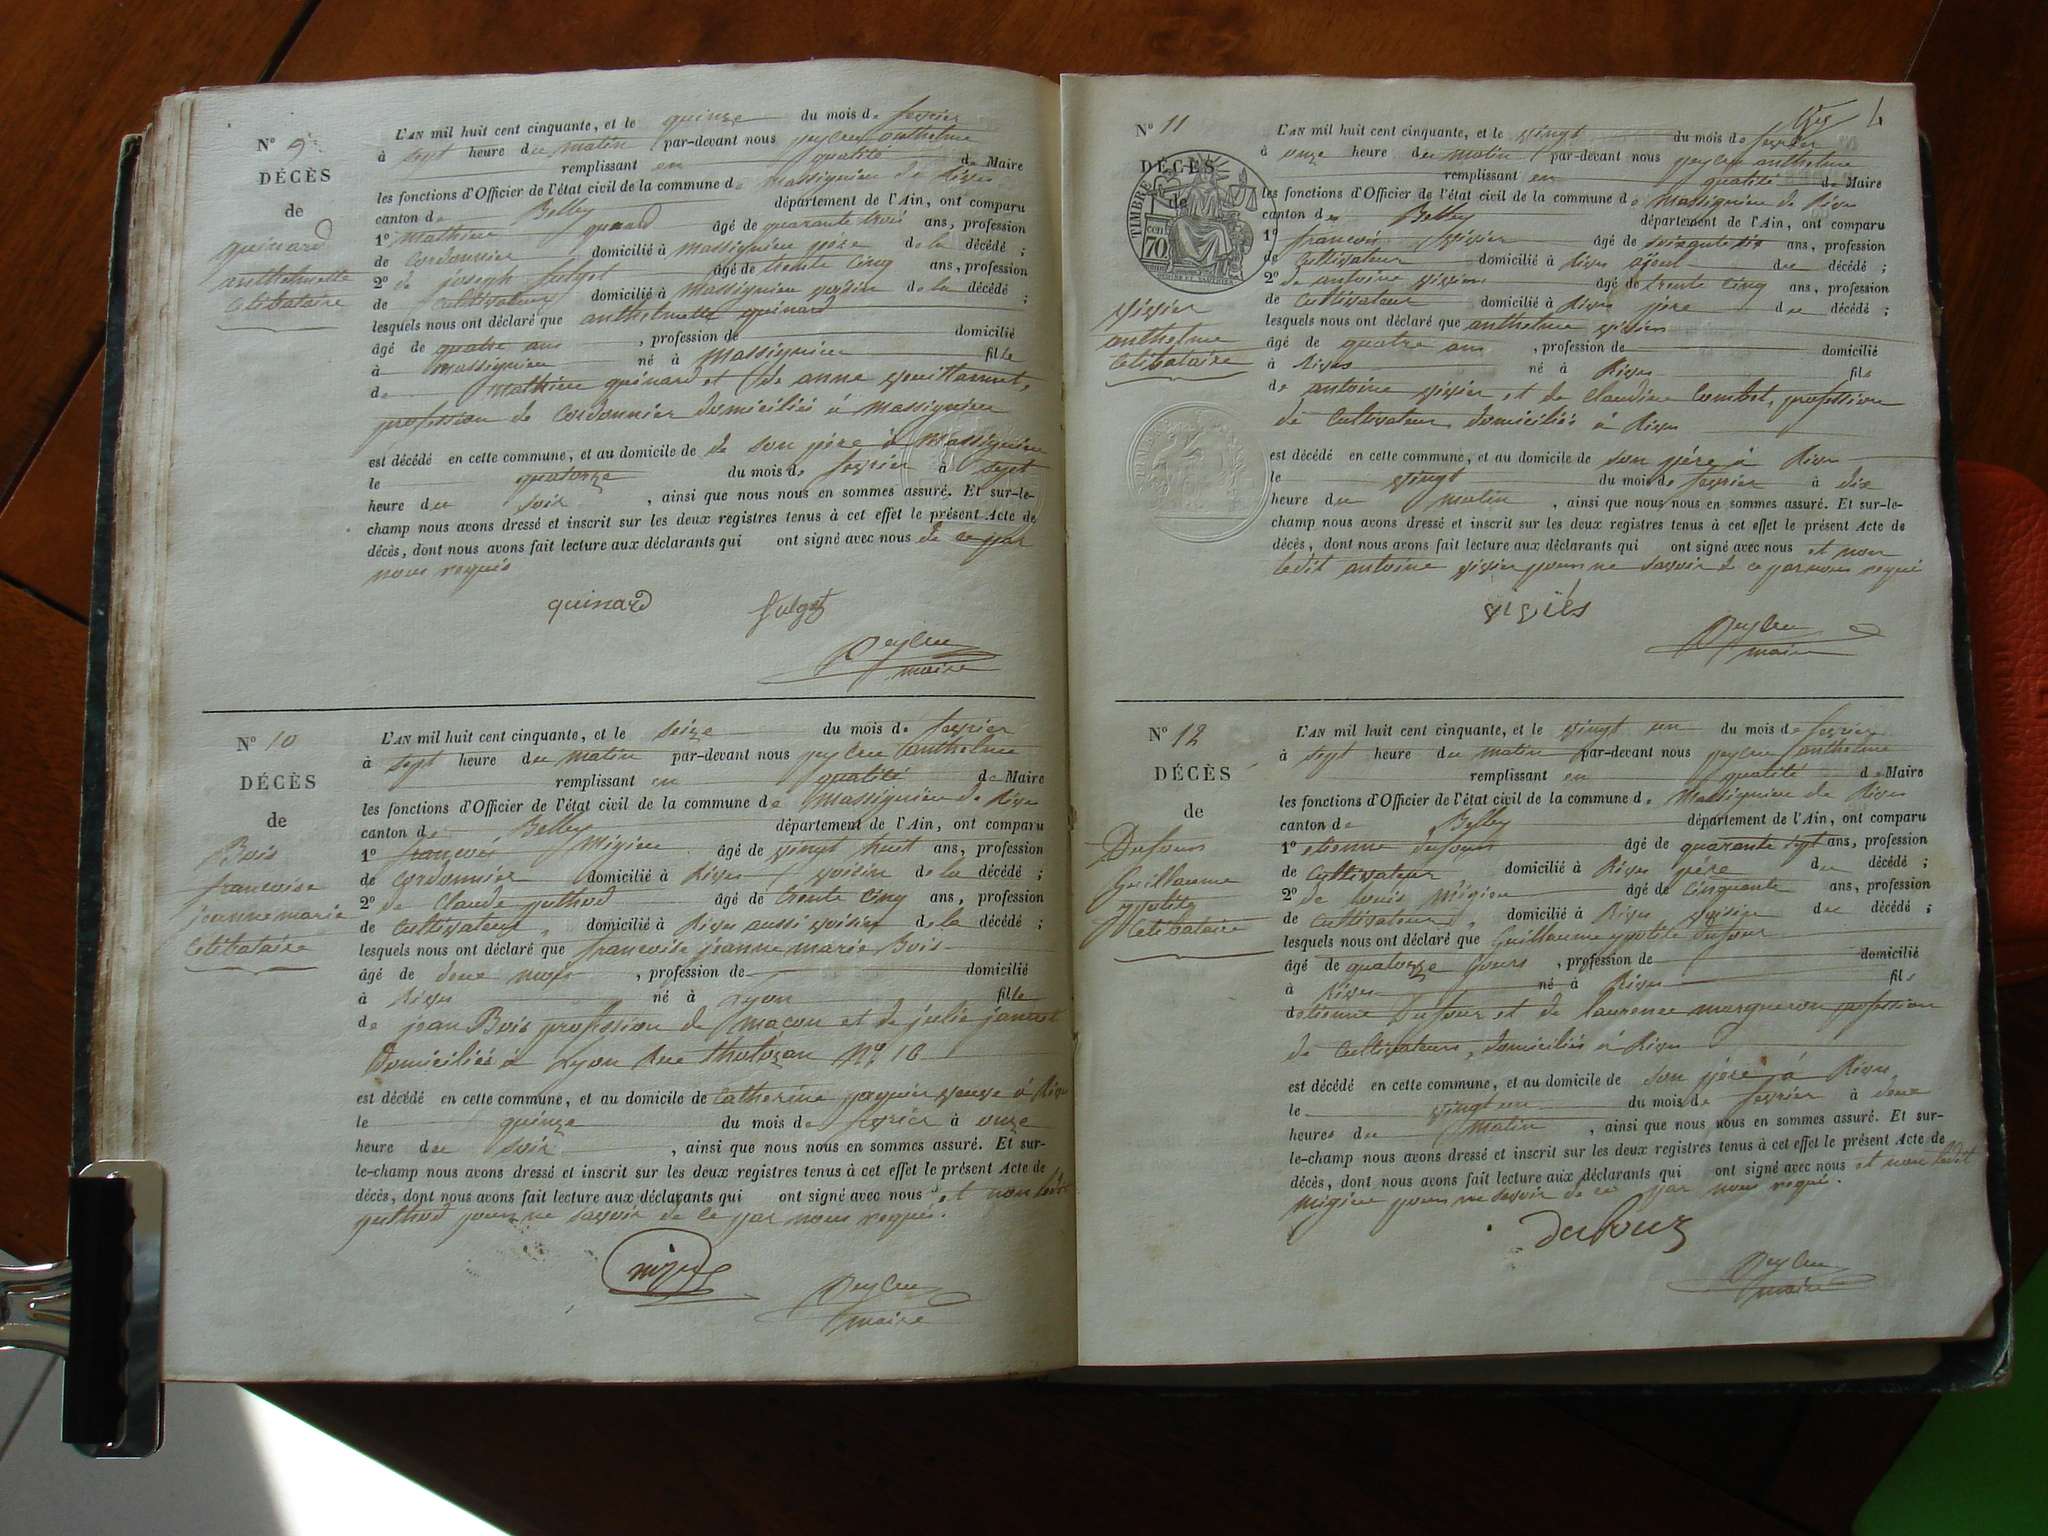 N° 9
DÉCÈS
de
quinard
anthelmette
Célibataire
L'AN mil huit cent cinquante, et le quinze du mois de fevrier
à sept heure du matin par-devant nous peyleu anthelme
remplissant en qualité de Maire
les fonctions d'Officier de l'état civil de la commune de massignieu de Rives
canton de Belley département de l'Ain, ont comparu
1° mathieu quinard âgé de quarante trois ans, profession
de cordonnier domicilié à massignieu père de la décédé ;
2° de joseph fulget âgé de trente cinq ans, profession
de cultivateur domicilié à massignieu voisin de la décédé ;
lesquels nous ont déclaré que anthelmette quinard
âgé de quatre ans , profession de domicilié
à massignieu né à massignieu fille
de mathieu quinard et de anne
profession de cordonnier domiciliés à massignieu
est décédé en cette commune, et au domicile de de son père à massignieu
le quatorze du mois de fevrier à sept
heure du soir , ainsi que nous nous en sommes assuré. Et sur-le-
champ nous avons dressé et inscrit sur les deux registres tenus à cet effet le présent Acte de
décès, dont nous avons fait lecture aux déclarants qui ont signé avec nous de ce par
nous requis
quinard fulget
Peyleu
maire
N° 10
DÉCÈS
de
Bois
francoise
jeanne marie
Célibataire
L'AN mil huit cent cinquante, et le seize du mois de fevrier
à sept heure du matin par-devant nous peyleu anthelme
remplissant en qualité de Maire
les fonctions d'Officier de l'état civil de la commune de massignieu de Rives
canton de Belley département de l'Ain, ont comparu
1° francois Migieu âgé de vingt huit ans, profession
de cordonnier domicilié à Rives voisin de la décédé ;
2° de Claude puthod âgé de trente cinq ans, profession
de cultivateur domicilié à Rives aussi voisin de la décédé ;
lesquels nous ont déclaré que francoise jeanne marie Bois
âgé de deux mois , profession de domicilié
à Rives né à Lyon fille
de jean Bois profession de macon et de julie
Domiciliés à Lyon Rue tholozan N° 16
est décédé en cette commune, et au domicile de Catherine veuve à Rives
le quinze du mois de fevrier à onze
heure du soir , ainsi que nous nous en sommes assuré. Et sur-
le-champ nous avons dressé et inscrit sur les deux registres tenus à cet effet le présent Acte de
décès, dont nous avons fait lecture aux déclarants qui ont signé avec nous et non ledit
puthod pour ne savoir de ce par nous requis.
Peyleu
maire
4
N° 11
DÉCÈS
de
TIMBRE
70
vivier
anthelme
Célibataire
L'AN mil huit cent cinquante, et le vingt du mois de fevrier
à onze heure du matin par-devant nous peyleu anthelme
remplissant en qualité de Maire
les fonctions d'Officier de l'état civil de la commune de massignieu de Rives
canton de Belley département de l'Ain, ont comparu
1° francois vivier âgé de soixante six ans, profession
de cultivateur domicilié à Rives ayeul du décédé ;
2° de antoine vivier âgé de trente cinq ans, profession
de cultivateur domicilié à Rives père du décédé ;
lesquels nous ont déclaré que anthelme vivier
âgé de quatre ans , profession de domicilié
à Rives né à Rives fils
de antoine vivier et de claudine Combet, profession
de cultivateur domiciliés à Rives
est décédé en cette commune, et au domicile de son père à Rives
le vingt du mois de fevrier à dix
heure du matin , ainsi que nous nous en sommes assuré. Et sur-le-
champ nous avons dressé et inscrit sur les deux registres tenus à cet effet le présent Acte de
décès, dont nous avons fait lecture aux déclarants qui ont signé avec nous et non
ledit antoine vivier pour ne savoir de ce par nous requis
Peyleu
maire
N° 12
DÉCÈS
de
Dufour
Guillaume
ypolite
Célibataire
L'AN mil huit cent cinquante, et le vingt un du mois de fevrier
à sept heure du matin par-devant nous peyleu anthelme
remplissant en qualité de Maire
les fonctions d'Officier de l'état civil de la commune de massignieu de Rives
canton de Belley département de l'Ain, ont comparu
1° etienne dufour âgé de quarante sept ans, profession
de cultivateur domicilié à Rives père du décédé ;
2° de louis Migieu âgé de cinquante ans, profession
de cultivateur domicilié à Rives voisin du décédé ;
lesquels nous ont déclaré que Guillaume ypolite dufour
âgé de quatorze jours , profession de domicilié
à Rives né à Rives fils
detienne Dufour et de laurence margueron profession
de cultivateurs, domiciliés à Rives
est décédé en cette commune, et au domicile de son père à Rives
le vingt un du mois de fevrier à deux
heures du matin , ainsi que nous nous en sommes assuré. Et sur-
le-champ nous avons dressé et inscrit sur les deux registres tenus à cet effet le présent Acte de
décès, dont nous avons fait lecture aux déclarants qui ont signé avec nous et non ledit
migieu pour ne savoir de ce par nous requis.
dufour
Peyleu
maire